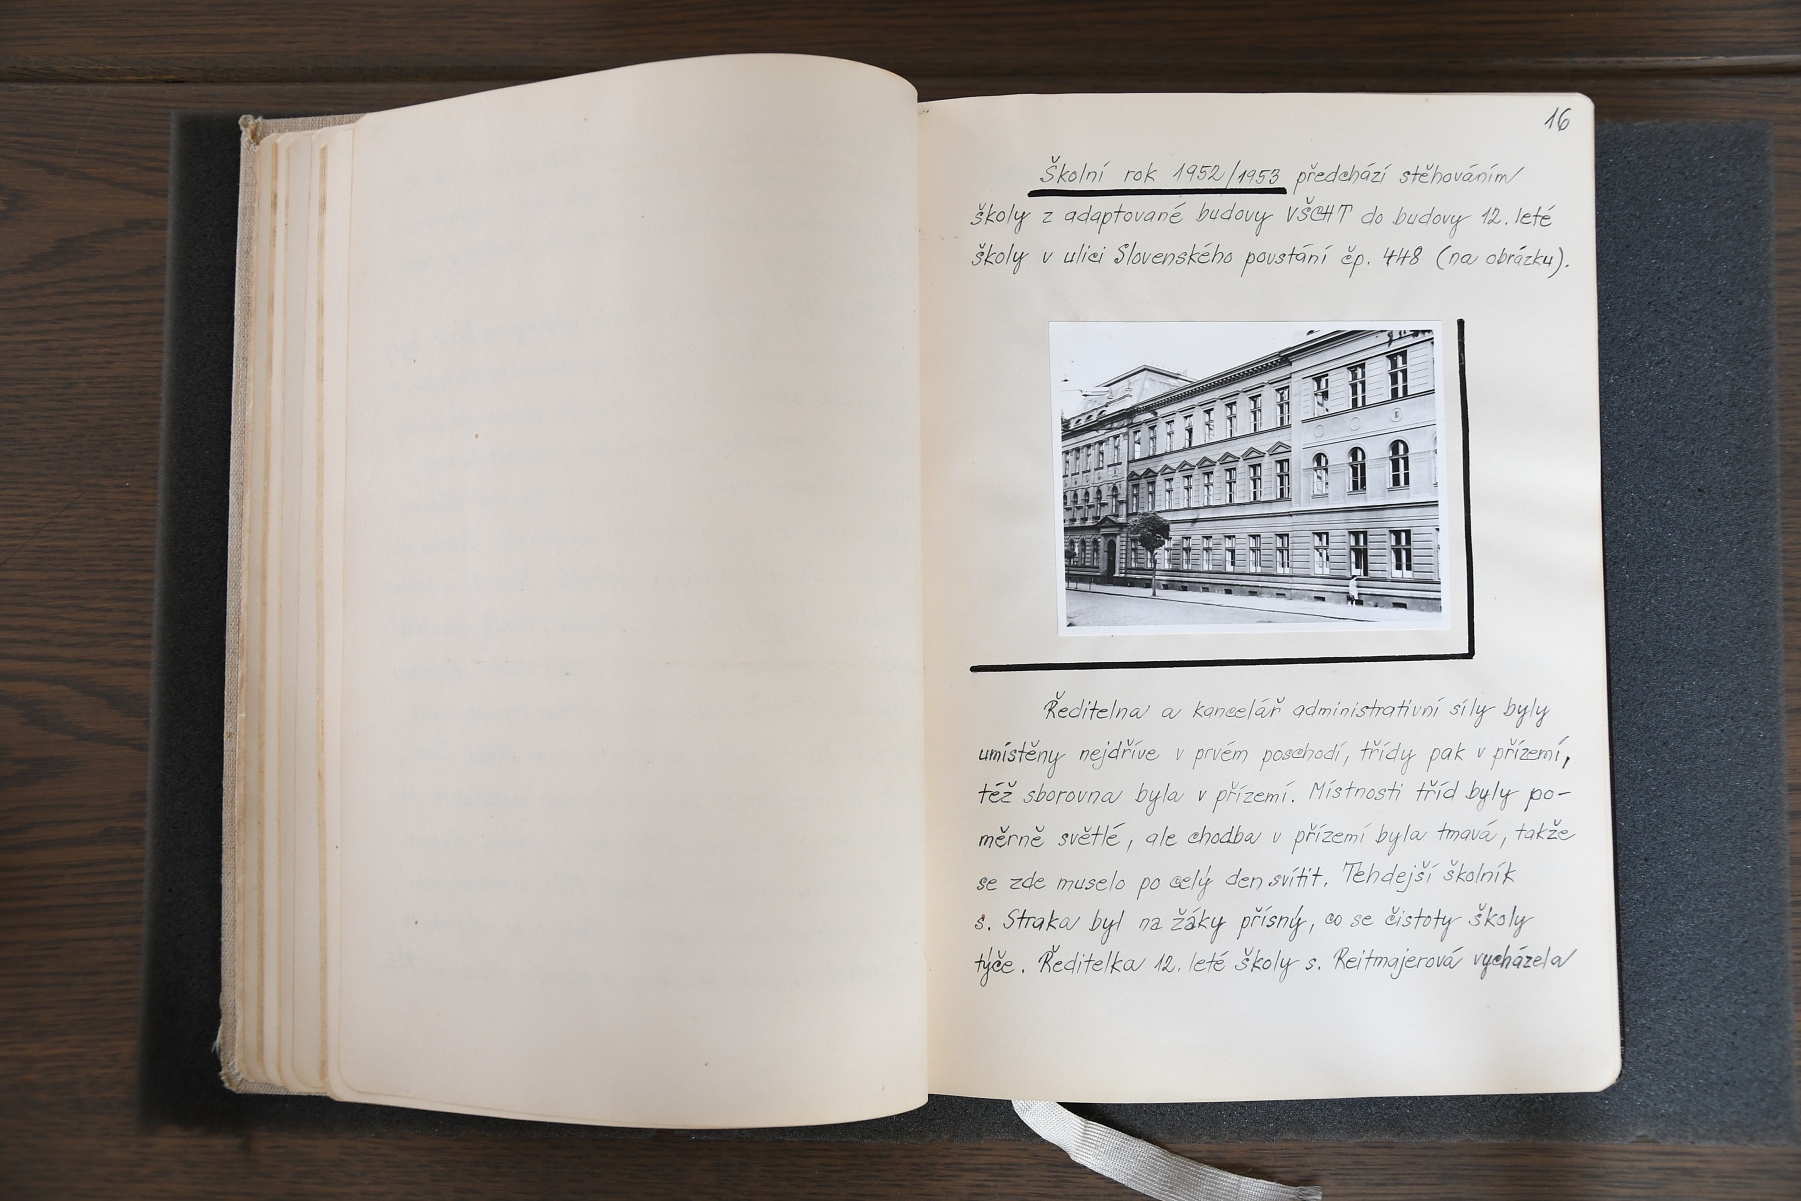 16
Školní rok 1952/1953 předchází stěhováním
školy z adaptované budovy VŠCHT do budovy 12. leté
školy v ulici Slovenského povstání čp. 448 (na obrázku).
Ředitelna a kancelář administrativní síly byly
umístěny nejdříve v prvém poschodí, třídy pak v přízemí,
též sborovna byla v přízemí. Místnosti tříd byly po-
měrně světlé, ale chodba v přízemí byla tmavá, takže
se zde muselo po celý den svítit. Tehdejší školník
s. Straka byl na žáky přísný, co se čistoty školy
týče. Ředitelka 12. leté školy s. Reitmajerová vycházela